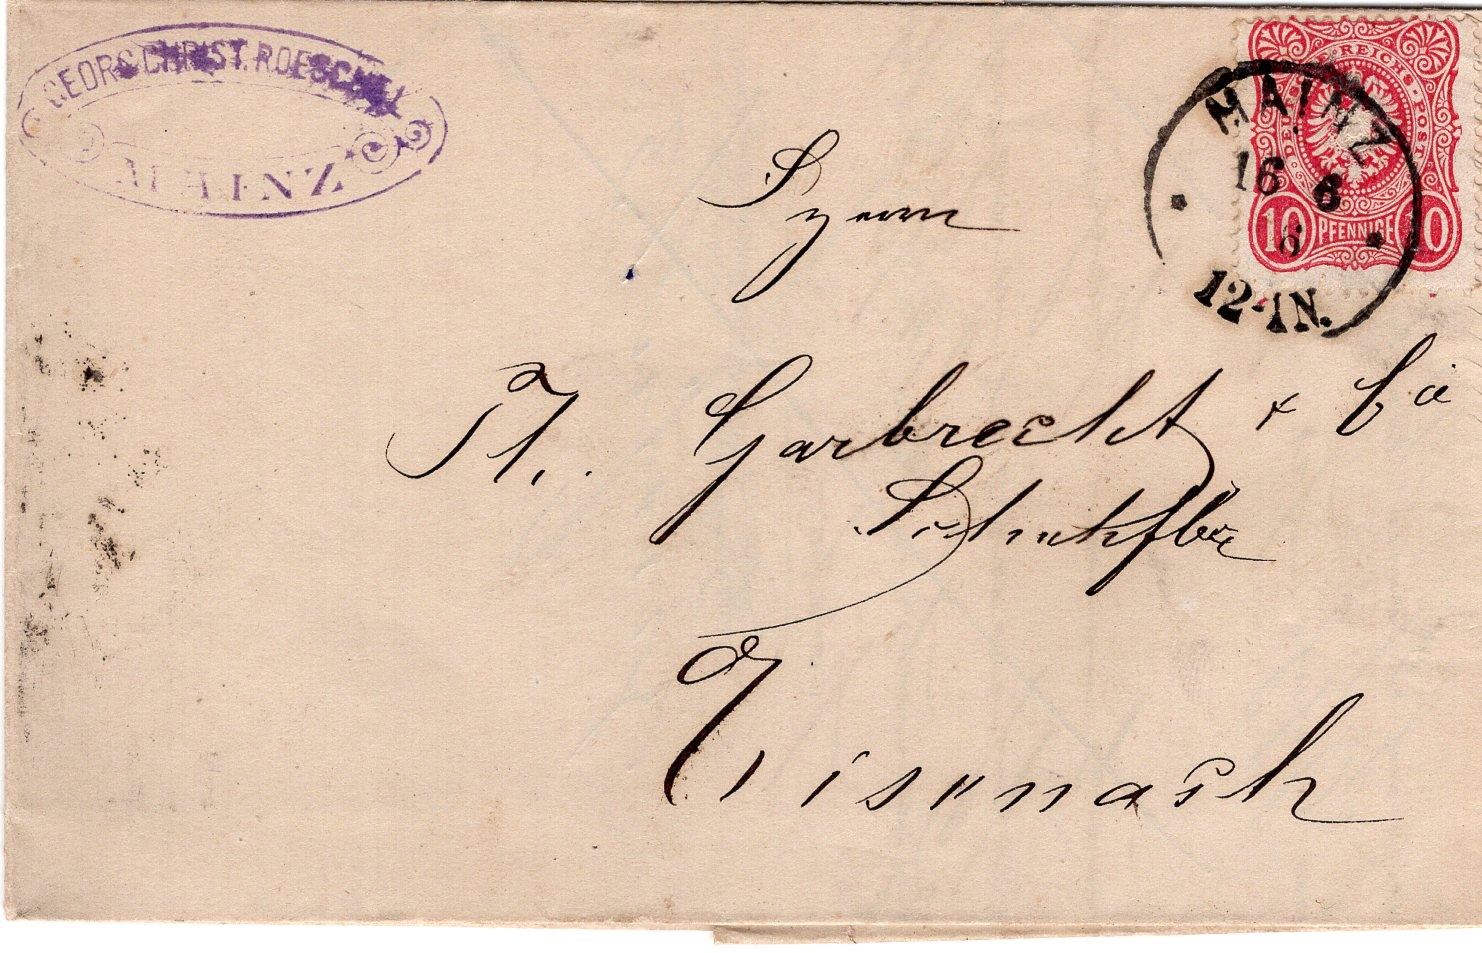 GEORG CHRIST. ROESCH
MAINZ
DEUTSCHE REICHS-POST
10 PFENNIGE 10
MAINZ
16 6
12-1N.
Herrn
Th. Garbrecht & Cie
Eisenach